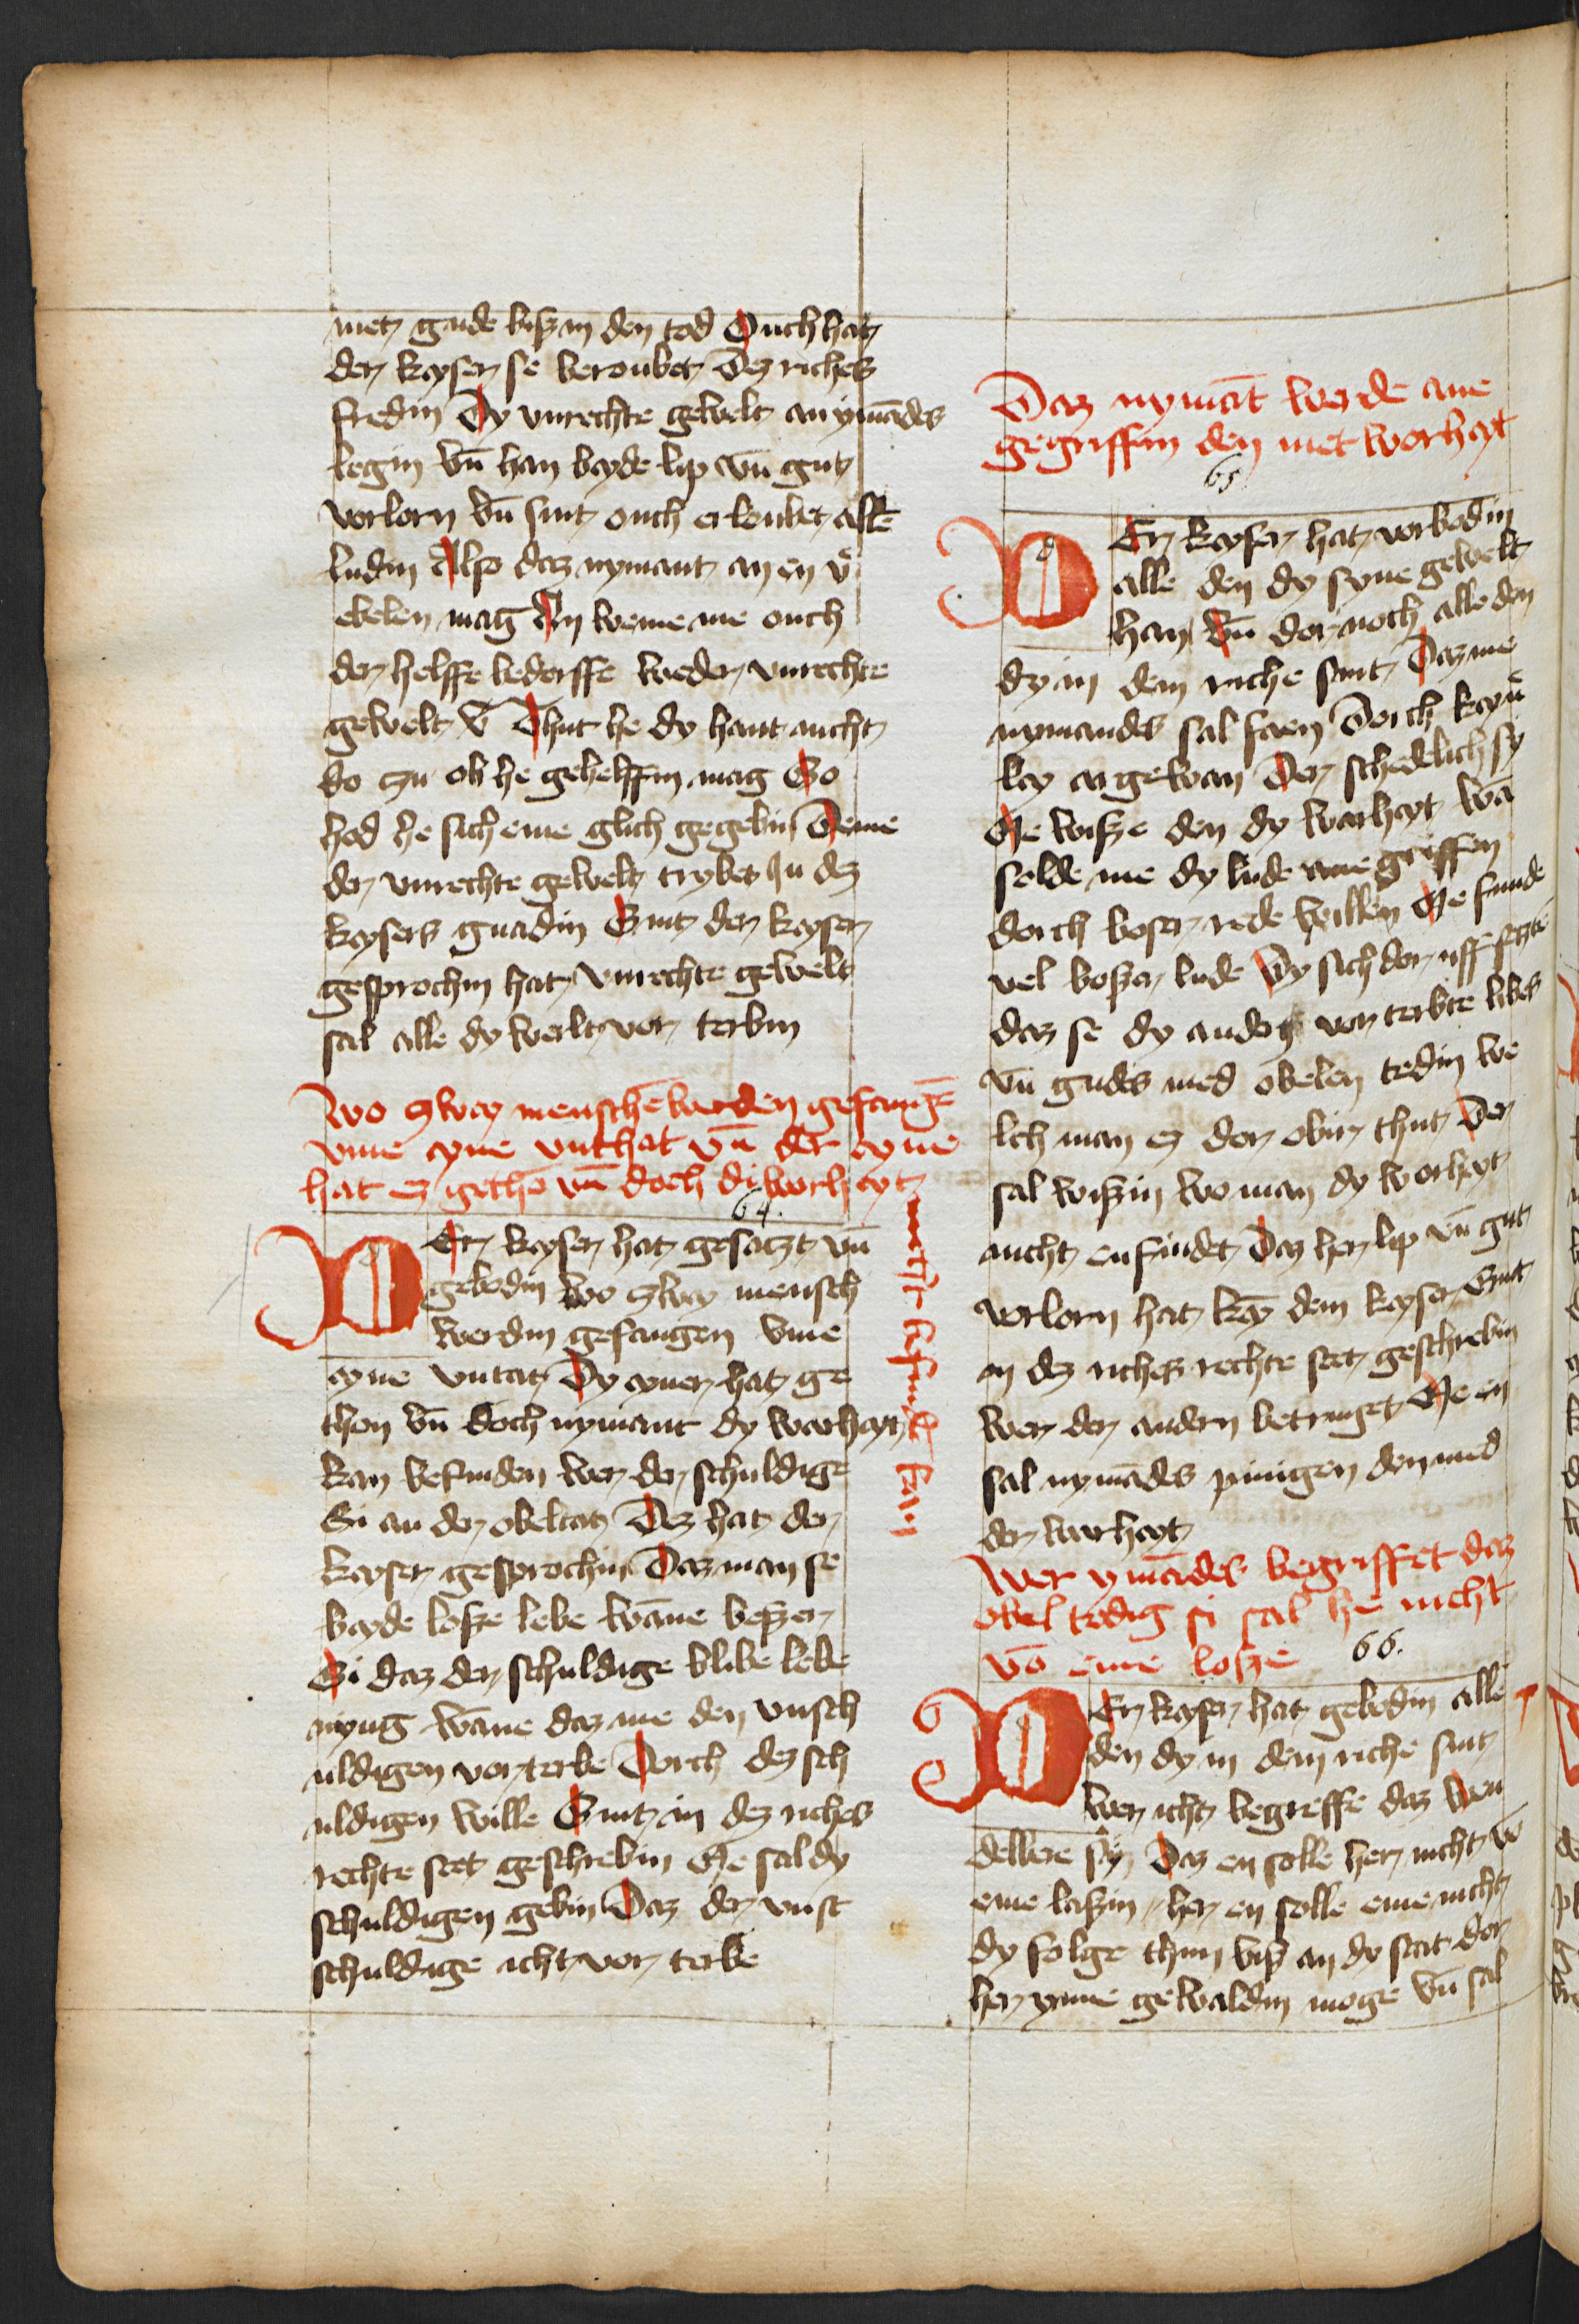 met gude bisz in den tod Ouch hat
der keyser se beroubet Dez riches
fredin Dy vnrechte gewelt an ymādes
legin vn̄ han beyde lip vn̄ gut
vorlorn vn̄ sint ouch erloubet allē
ludin Also daz nymant an en v̄
ebelen mag An weme me ouch
der helffe bedorffe weder vnrechte
gewelt v̄ Thut he dy hant nicht
do zu ob he gehelffin mag So
hod he sich eme glich gegebin Deme
der vnrechte gewelt trybet In dez
keysers gnadin Sint der keyser
gesprochin hat vnrechte gewelt
sal alle dy werlt vor terbin
Wo zwey menschē werden gefangē
vme eyne vnthat vn̄ der eyne
hat ez gethō vn̄ doch di worheyt
nicht befindē kan
64.
DEr keyser hat gesatzt vn̄
gebodin wo zwey mensch
werdin gefangen vme
eyne vntat Dy eyner hat ge
thon vn̄ doch nymant dy warheyt
kan befinden wer der schuldige
Si an der obeltat Dez hat der
keyser gesprochin Daz man se
beyde losze lebe wāne beszer
Si daz der schuldige blibe lebe
nyng wāne daz me den vnsch
uldigen vor terbe Dorch dez sch
uldigen wille Sint in dez riches
rechte stet geschrebin Me sal dy
schuldigen gebin Daz der vnst
schuldige icht vor terbe
Daz nymāt werde ane
gegriffin den met worheyt
65
DEr keyser hat vorbodin
alle den dy syne gewelt
han vn̄ dor noch alle den
dy in dem riche sint Daz me
nymandes sal faen Dorch keyn̄
ley argewan Der schedelich sy
Me wisze den dy warheyt wā
solde me dy lude ane griffen
dorch boser rede willen Me funde
vel boszer lude Dy sich dor uff setzte
daz se dy andern vor terbte libes
vn̄ gudes med obelen tedin we
lch man ez dor obir thut Der
sal wiszin wo man dy worheyt
nicht en findet Daz her lip vn̄ gut
vorlorn hat key dem keyser Sint
in dez riches rechte stet geschrebin
wer der andern betruget Me en
sal nymādes pinigen den med
der warheyt
Wer ymādes begriffet daz
obel tedig si sal he nicht
vō eme losze
66.
DEr keyser hat gebodin alle
den dy in dem riche sint
wer icht begreffe daz wen
delbere sy Daz en solle her nicht v̄o
eme laszin her en solle eme nicht
dy folge thun bisz an dy stat dor
her yme gewaldin moge vn̄ sal